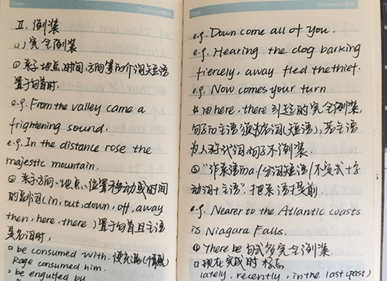 II. 倒装
(1) 完全倒装
① 表示地点、时间、方向等的介词短语
置于句首时.
e.g. From the valley came a
frightening sound.
e.g. In the distance rose the
majestic mountain.
② 表示方向、地点、位置移动或时间
的副词 (in, out, down, off, away
then, here, there) 置于句首且主语
是名词时,
be consumed with
Rage consumed him.
be engulfed by
e.g. Down come all of you.
e.g. Hearing the dog barking
fiercely, away fled the thief.
e.g. Now comes your turn
由 here, there 引起的完全倒装,
句子的主语须为名词(短语), 若主语
为人称代词, 则句子不倒装.
动词+主语" 把表语提前
e.g. Nearer to the Atlantic coasts
is Niagara Falls.
④ There be 句式多完全倒装.
现在完成时
lately, recently, in the last (past)